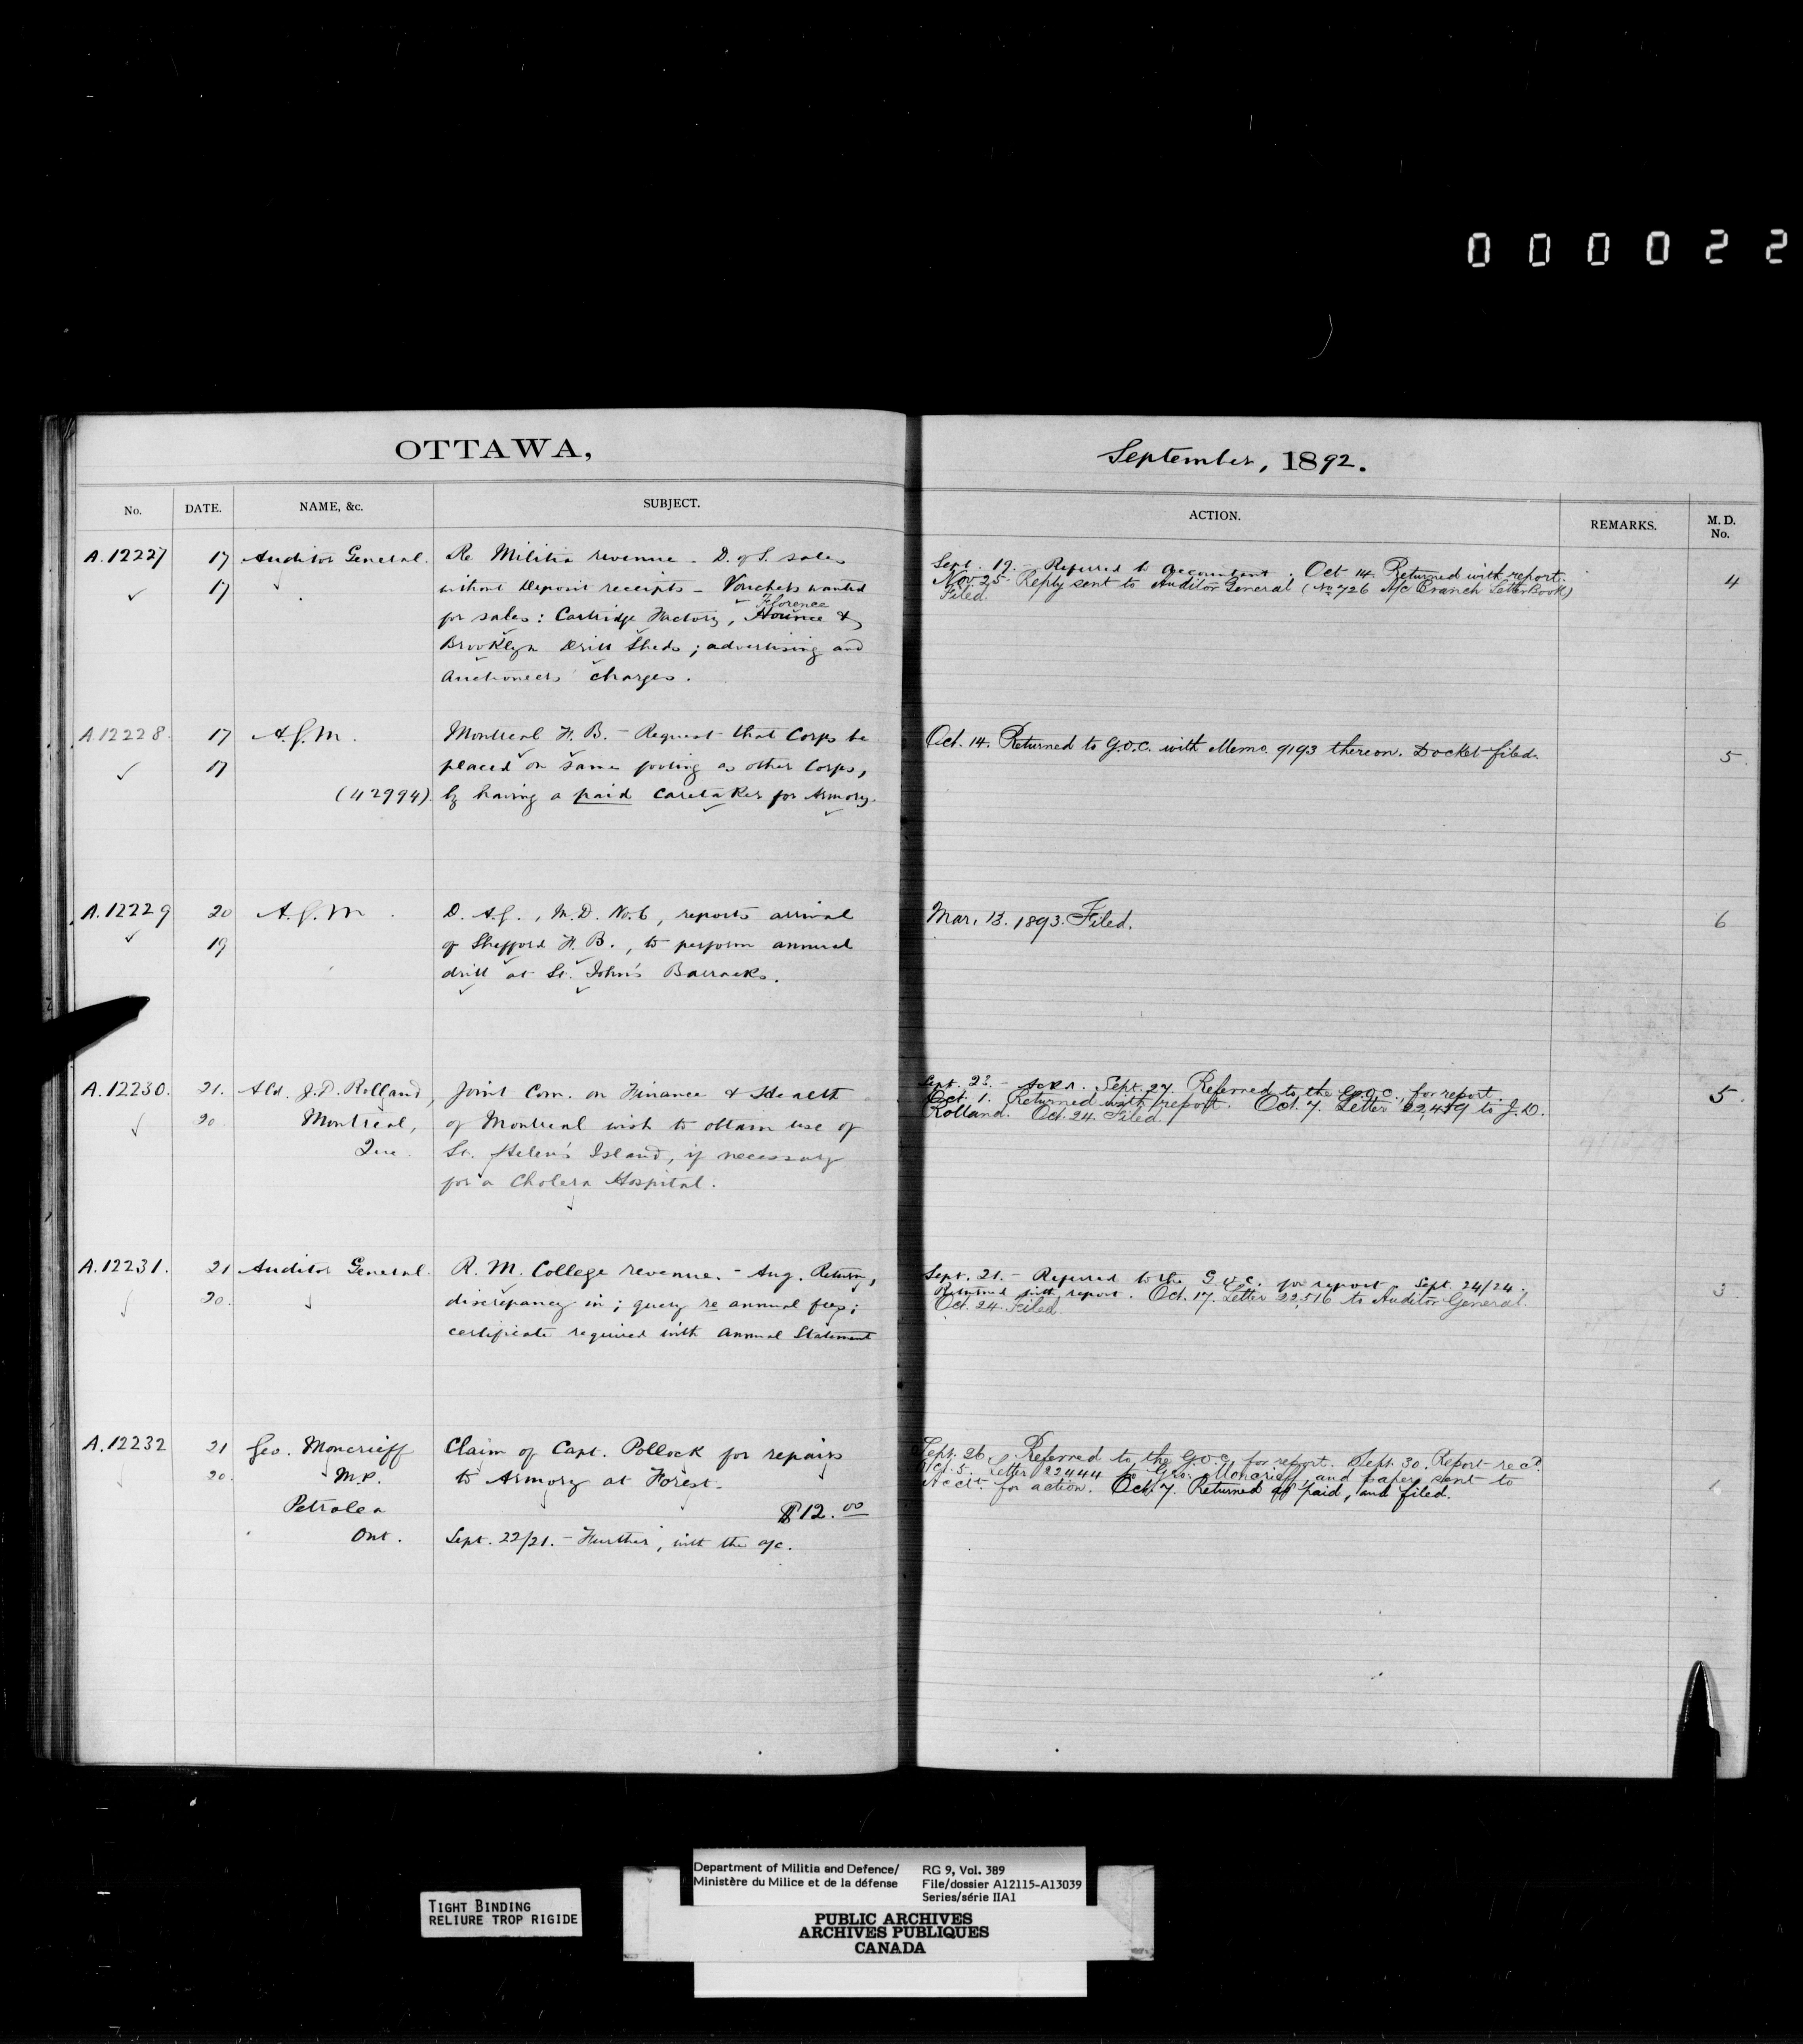 000022
OTTAWA,
September, 1892.
No. DATE. NAME, &c. SUBJECT. ACTION. REMARKS. M. D. No.
A.12227 17 Auditor General. Re Militia revenue - D. of S. sales
17 without Deposit receipts - Vouchers wanted
Florence
for sales: Cartridge Factory, &
Brooklyn Drill Sheds; advertising and
Auctioneers' charges.
Sept. 19. - Referred to Accountant. Oct 14. Returned with report.
Nov. 25. Reply sent to Auditor General (No 726 A/c Branch Letter Book)
Filed.
4
A.12228. 17 A.G.M. Montreal F. B. - Request that Corps be
17 placed on same footing as other Corps,
(42994). by having a paid caretaker for Armory.
Oct. 14. Returned to G.O.C. with Memo. 9193 thereon. Docket filed.
5.
A.12229 20 A.G.M. D. A.G., M.D. No. 6, reports arrival
19 of Shefford F. B., to perform annual
drill at St. John's Barracks.
Mar. 13. 1893. Filed.
6
A.12230. 21. Ald. J.D. Rolland, Joint Com. on Finance & Health
20. Montreal, of Montreal wish to obtain use of
Que. St. Helen's Island, if necessary
for a Cholera Hospital.
Sept. - Ackd. Sept. 27. Referred to the G.O.C., for report.
Oct. 1. Returned with report. Oct. 7. Letter 22,459 to J.D.
Rolland. Oct. 24. Filed.
5.
A.12231. 21 Auditor General. R. M. College revenue. - Aug. Return,
20. discrepancy in; query re annual fees;
certificate required with Annual Statement
Sept. 21. - Referred to the G.O.C. for report. Sept. 24/24.
Returned with report. Oct. 17. Letter 22,516 to Auditor General.
Oct. 24. Filed.
3.
A.12232 21 Geo. Moncrieff Claim of Capt. Pollock for repairs
20. M.P. to Armory at Forest.
Petrolea $12.00
Ont. Sept. 22/21. - Further, with the a/c.
Sept. 26. Referred to the G.O.C. for report. Sept. 30. Report recd.
Oct. 5. Letter 22444 to Geo. Moncrieff, and papers sent to
Acct. for action. Oct. 7. Returned as paid, and filed.
1
TIGHT BINDING
RELIURE TROP RIGIDE
Department of Militia and Defence/
Ministère du Milice et de la défense
RG 9, Vol. 389
File/dossier A12115-A13039
Series/série IIA1
PUBLIC ARCHIVES
ARCHIVES PUBLIQUES
CANADA